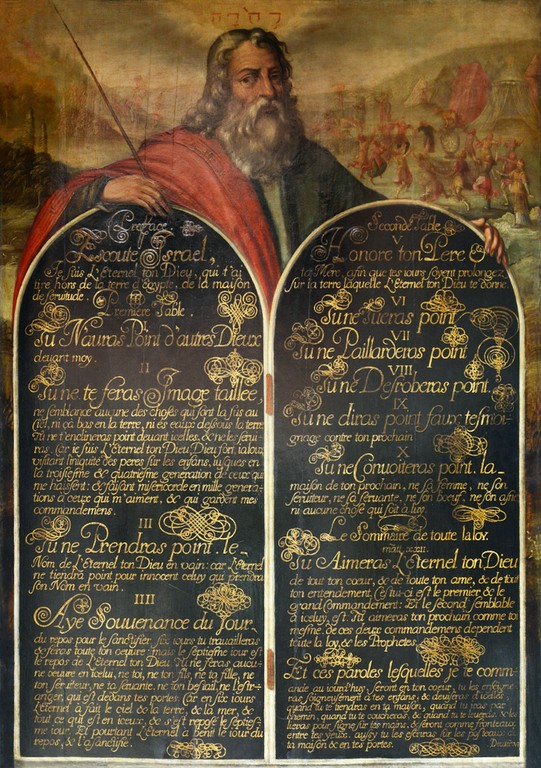 Preface.
Escoute Israel,
Je suis L'Eternel ton Dieu, qui t'ai
tiré hors de la terre d'Egypte, de la maison
de servitude.
Premiere Table.
I
Tu N'auras Point d'autres Dieux
devant moy.
II
Tu ne te feras Image taillée,
ne semblance aucune des choses qui sont la sus au
Ciel, ni ça bas en la terre, ni es eaux dessous la terre
Tu ne t'enclineras point devant icelles, & ne les servi-
ras. Car je suis L'Eternel ton Dieu, Dieu fort, jaloux
visitant l'iniquité des peres sur les enfans, jusques en
la troisiesme & quatriesme generation de ceux qui
me haissent: & faisant misericorde en mille genera-
tions à ceux qui m'aiment, & qui gardent mes
commandemens.
III
Tu ne Prendras point le
Nom de L'Eternel ton Dieu en vain: car L'Eternel
ne tiendra point pour innocent celuy qui prendra
son Nom en vain.
IIII
Aye Souvenance du Jour
du repos pour le sanctifier. six jours tu travailleras
& feras toute ton oeuvre: mais le septiesme jour est
le repos de L'Eternel ton Dieu. Tu ne feras aucu-
ne oeuvre en icelui, ne toi, ne ton fils, ne ta fille, ne
ton serviteur, ne ta servante, ne ton bestail, ne l'estr-
anger qui est dedans tes portes. Car en six jours
L'Eternel a fait le ciel & la terre, & la mer, &
tout ce qui est en iceux, & s'est reposé le septies-
me jour. Et pourtant L'Eternel a benit le jour du
repos, & l'a sanctifié.
Seconde Table.
V
Honore ton Pere &
ta Mere, afin que tes jours soyent prolongez
sur la terre laquelle L'Eternel ton Dieu te donne.
VI
Tu ne tueras point.
VII
Tu ne Paillarderas point
VIII
Tu ne Desroberas point.
IX
Tu ne diras point faux tesmoi-
gnage contre ton prochain
X
Tu ne Convoiteras point la
maison de ton prochain, ne sa femme, ne son
serviteur, ne sa servante, ne son boeuf, ne son asne
ni aucune chose qui soit à luy.
Le Sommaire de toute la loy.
mat. xxii.
Tu Aimeras L'Eternel ton Dieu
de tout ton coeur, & de toute ton ame, & de tout
ton entendement. Cestui-ci est le premier & le
grand Commandement: Et le second semblable
à iceluy, est: Tu aimeras ton prochain comme toi
mesme. de ces deux commandemens dependent
toute la loy, & les Prophetes.
Et ces paroles lesquelles je te comm-
ande aujourd'huy, seront en ton coeur, tu les enseigne-
ras soigneusement à tes enfans, & deviseras d'icelles
quand tu te tiendras en ta maison, quand tu iras par
chemin, quand tu te coucheras, & quand tu te leveras. & les
lieras pour signe sur tes mains, & seront comme fronteaux
entre tes yeux. aussy tu les escriras sur les posteaux de
ta maison & en tes portes.